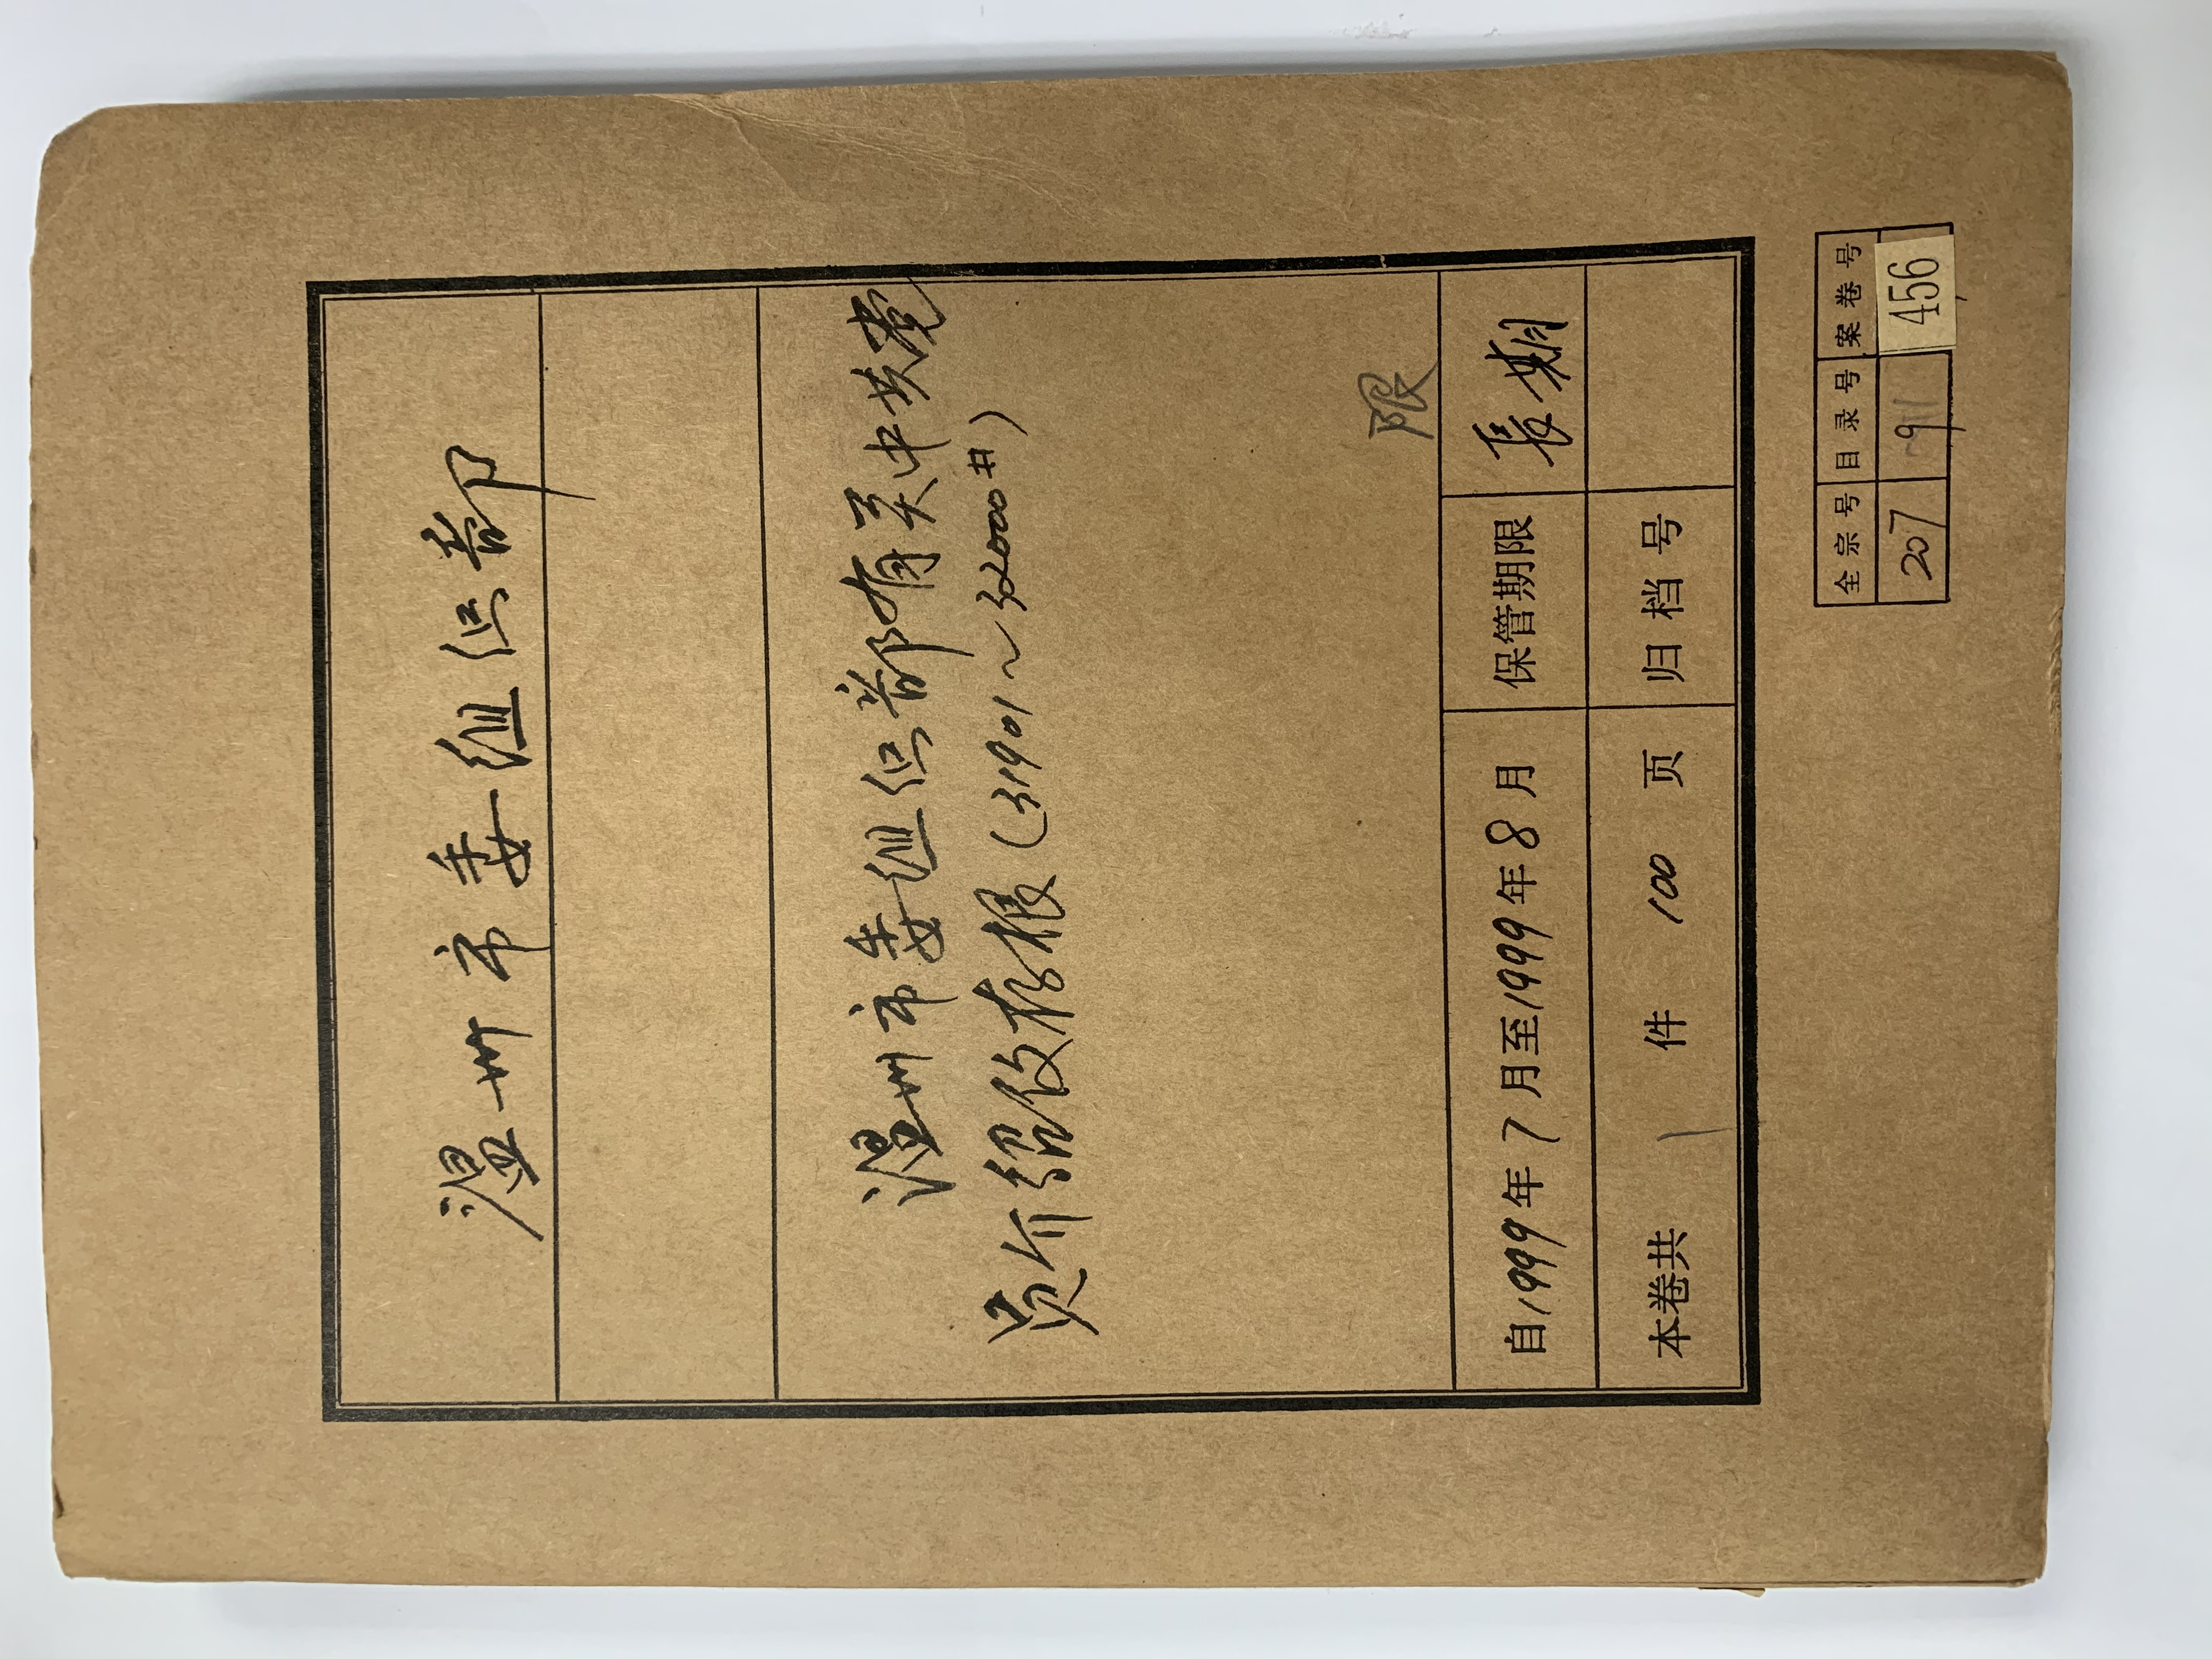 温州市委组织部
温州市委组织部有关中共党
员介绍信存根（31901～32000#）
限
自1999年7月至1999年8月 保管期限 長期
本卷共 1 件 100 页 归档号
全宗号 目录号 案卷号
207 911 456